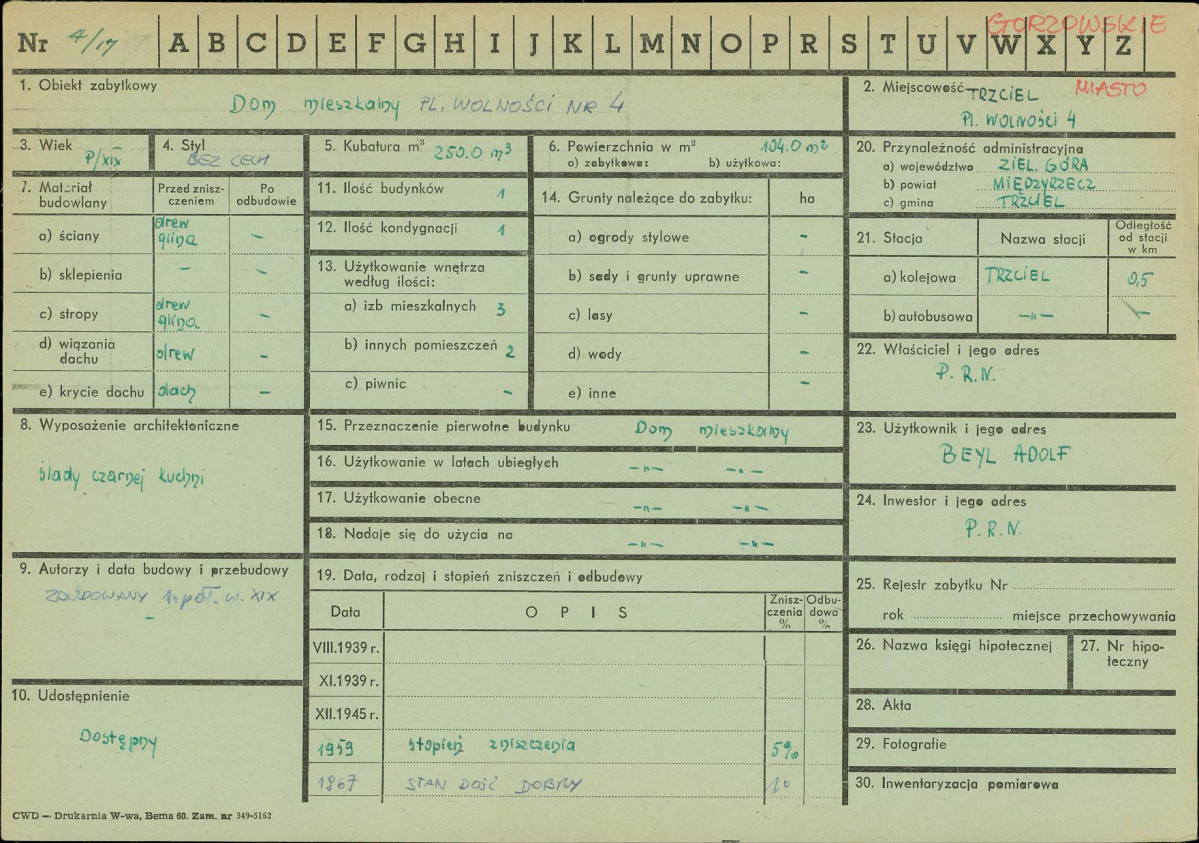 GORZOWSKIE
Nr 4/17 A B C D E F G H I J K L M N O P R S T U V W X Y Z
1. Obiekt zabytkowy
Dom mieszkalny PL. WOLNOŚCI NR 4
2. Miejscowość TRZCIEL MIASTO
Pl. WOLNOŚCI 4
3. Wiek
P/XIX
4. Styl
BEZ CECH
5. Kubatura m³ 250.0 m³
6. Powierzchnia w m² 104.0 m²
a) zabytkowa: b) użytkowa:
20. Przynależność administracyjna
a) województwo ZIEL. GÓRA
b) powiat MIĘDZYRZECZ
c) gmina TRZCIEL
7. Materiał budowlany
Przed zniszczeniem
Po odbudowie
a) ściany drew glina –
b) sklepienia – –
c) stropy drew glina –
d) wiązania dachu drew –
e) krycie dachu dach –
11. Ilość budynków 1
12. Ilość kondygnacji 1
13. Użytkowanie wnętrza
według ilości:
a) izb mieszkalnych 3
b) innych pomieszczeń 2
c) piwnic –
14. Grunty należące do zabytku: ha
a) ogrody stylowe –
b) sady i grunty uprawne –
c) lasy –
d) wody –
e) inne –
21. Stacja Nazwa stacji Odległość od stacji w km
a) kolejowa TRZCIEL 0,5
b) autobusowa –"– –
22. Właściciel i jego adres
P. R. N.
8. Wyposażenie architektoniczne
ślady czarnej kuchni
15. Przeznaczenie pierwotne budynku Dom mieszkalny
16. Użytkowanie w latach ubiegłych –"– –"–
17. Użytkowanie obecne –"– –"–
18. Nadaje się do użycia na –"– –"–
23. Użytkownik i jego adres
BEYL ADOLF
24. Inwestor i jego adres
P. R. N.
9. Autorzy i data budowy i przebudowy
ZBUDOWANY 1. poł. w. XIX
–
10. Udostępnienie
Dostępny
19. Data, rodzaj i stopień zniszczeń i odbudowy
Data OPIS Zniszczenia % Odbudowa %
VIII.1939 r.
XI.1939 r.
XII.1945 r.
1959 stopień zniszczenia 5%
1967 STAN DOŚĆ DOBRY 10
25. Rejestr zabytku Nr
rok miejsce przechowywania
26. Nazwa księgi hipotecznej
27. Nr hipoteczny
28. Akta
29. Fotografie
30. Inwentaryzacja pomiarowa
CWD — Drukarnia W-wa, Bema 60. Zam. nr 349-5162